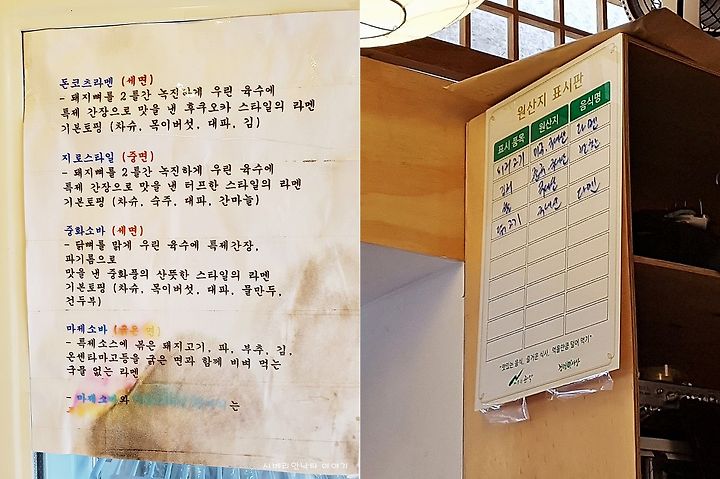 돈코츠라멘 (세면)
- 돼지뼈를 2틀간 녹진하게 우린 육수에
특제 간장으로 맛을 낸 후쿠오카 스타일의 라멘
기본토핑 (차슈, 목이버섯, 대파, 김)
지로스타일 (중면)
- 돼지뼈를 2틀간 녹진하게 우린 육수에
특제 간장으로 맛을 낸 터프한 스타일의 라멘
기본토핑 (차슈, 숙주, 대파, 간마늘)
중화소바 (세면)
- 닭뼈를 맑게 우린 육수에 특제간장,
파기름으로
맛을 낸 중화풍의 산뜻한 스타일의 라멘
기본토핑 (차슈, 목이버섯, 대파, 물만두,
건두부)
마제소바 (굵은 면)
- 특제소스에 볶은 돼지고기, 파, 부추, 김,
온센타마고등을 굵은 면과 함께 비벼 먹는
국물 없는 라멘
- 마제소바와 는
시베리안낙타 이야기
원산지 표시판
표시 품목 원산지 음식명
라멘
김치
쌀 국내산
닭고기 국내산 라멘
"맛있는 음식, 즐거운 식사, 먹을만큼 덜어 먹기"